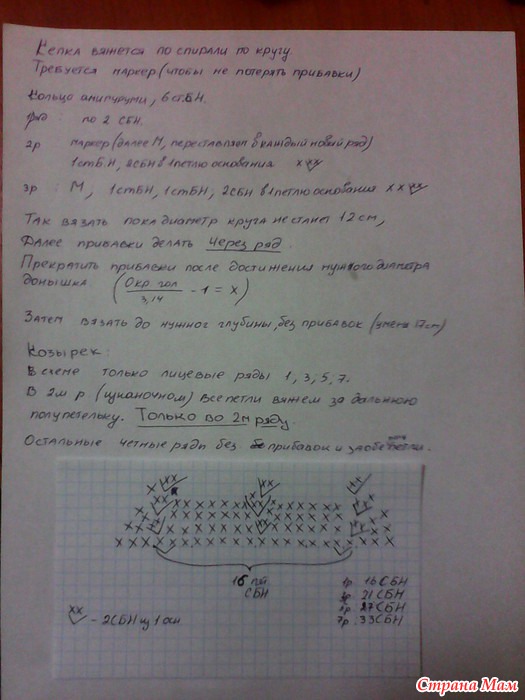 Кепка вяжется по спирали по кругу.
Требуется маркер (чтобы не потерять прибавки)
Кольцо амигуруми, 6 ст.БН.
ряд : по 2 СБН.
2р маркер (далее М, переставляем в каждый новый ряд)
1 ст БН, 2СБН в 1 петлю основания х хх
3р : М, 1 стБН, 1 стБН, 2СБН в 1 петлю основания х х хх
Так вязать пока диаметр круга не станет 12 см,
Далее прибавки делать через ряд.
Прекратить прибавки после достижения нужного диаметра
донышка (Окр. гол / 3,14 - 1 = х)
Затем вязать до нужной глубины, без прибавок (у меня 17см)
Козырек:
В схеме только лицевые ряды 1, 3, 5, 7.
В 2м р. (изнаночном) все петли вяжем за дальнюю
полупетельку. Только во 2м ряду.
Остальные четные ряды без прибавок и за обе петли.
16
СБН
1р 16 СБН
21 СБН
27 СБН
7р. 33 СБН
хх - 2СБН из 1 осн
Страна Мам